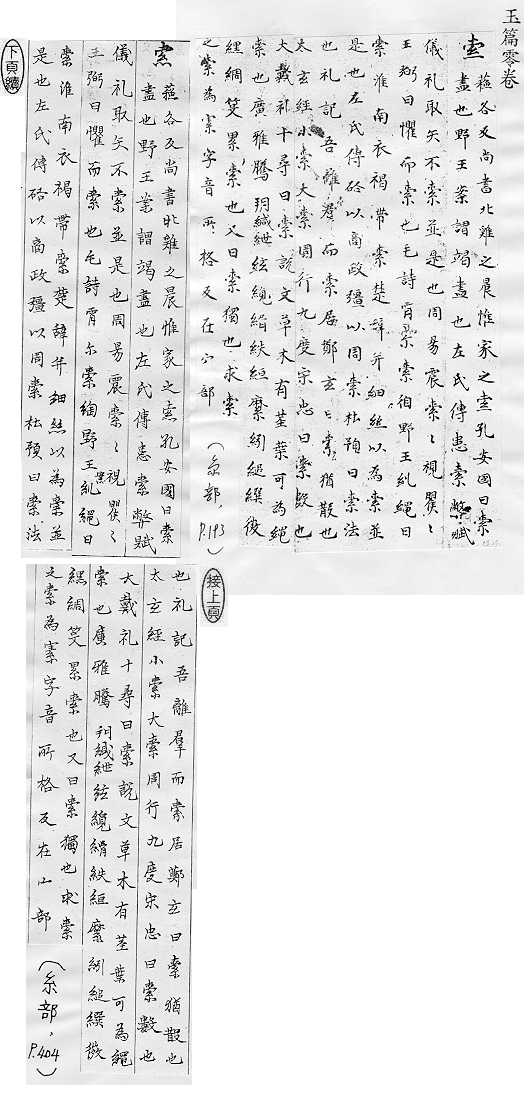 玉篇零卷
索 蘇各反尚書牝雞之晨惟家之索孔安國曰索
盡也野王案謂竭盡也左氏傳悉索弊賦
儀礼取矢不索並是也周易震索〻視瞿〻
王弼曰懼而索也毛詩宵尒索綯野王糺繩曰
索淮南衣褐帶索楚辞并細絲以為索並
是也左氏傳啓以商政疆以周索杜預曰索法
也礼記吾離羣而索居鄭玄曰索猶散也
太玄經小索大索周行九度宋忠曰索數也
大戴礼十尋曰索說文草木有莖葉可為繩
索也廣雅騰緘紲絃纜縜紩絙縻紖縋繏
綢筊累索也又曰索獨也求索
之索為字音所格反在宀部
(糸部, P.193)
索 蘇各反尚書牝雞之晨惟家之索孔安國曰索
盡也野王案謂竭盡也左氏傳悉索弊賦
儀礼取矢不索並是也周易震索〻視瞿〻
王弼曰懼而索也毛詩宵尒索綯野王案糺繩曰
索淮南衣褐帶索楚辞并細絲以為索並
是也左氏傳啓以商政疆以周索杜預曰索法
下頁續
接上頁
也礼記吾離羣而索居鄭玄曰索猶散也
太玄經小索大索周行九度宋忠曰索數也
大戴礼十尋曰索說文草木有莖葉可為繩
索也廣雅騰緘紲絃纜縜紩絙縻紖縋繏
綢筊累索也又曰索獨也求索
之索為字音所格反在宀部
(糸部, P.404)